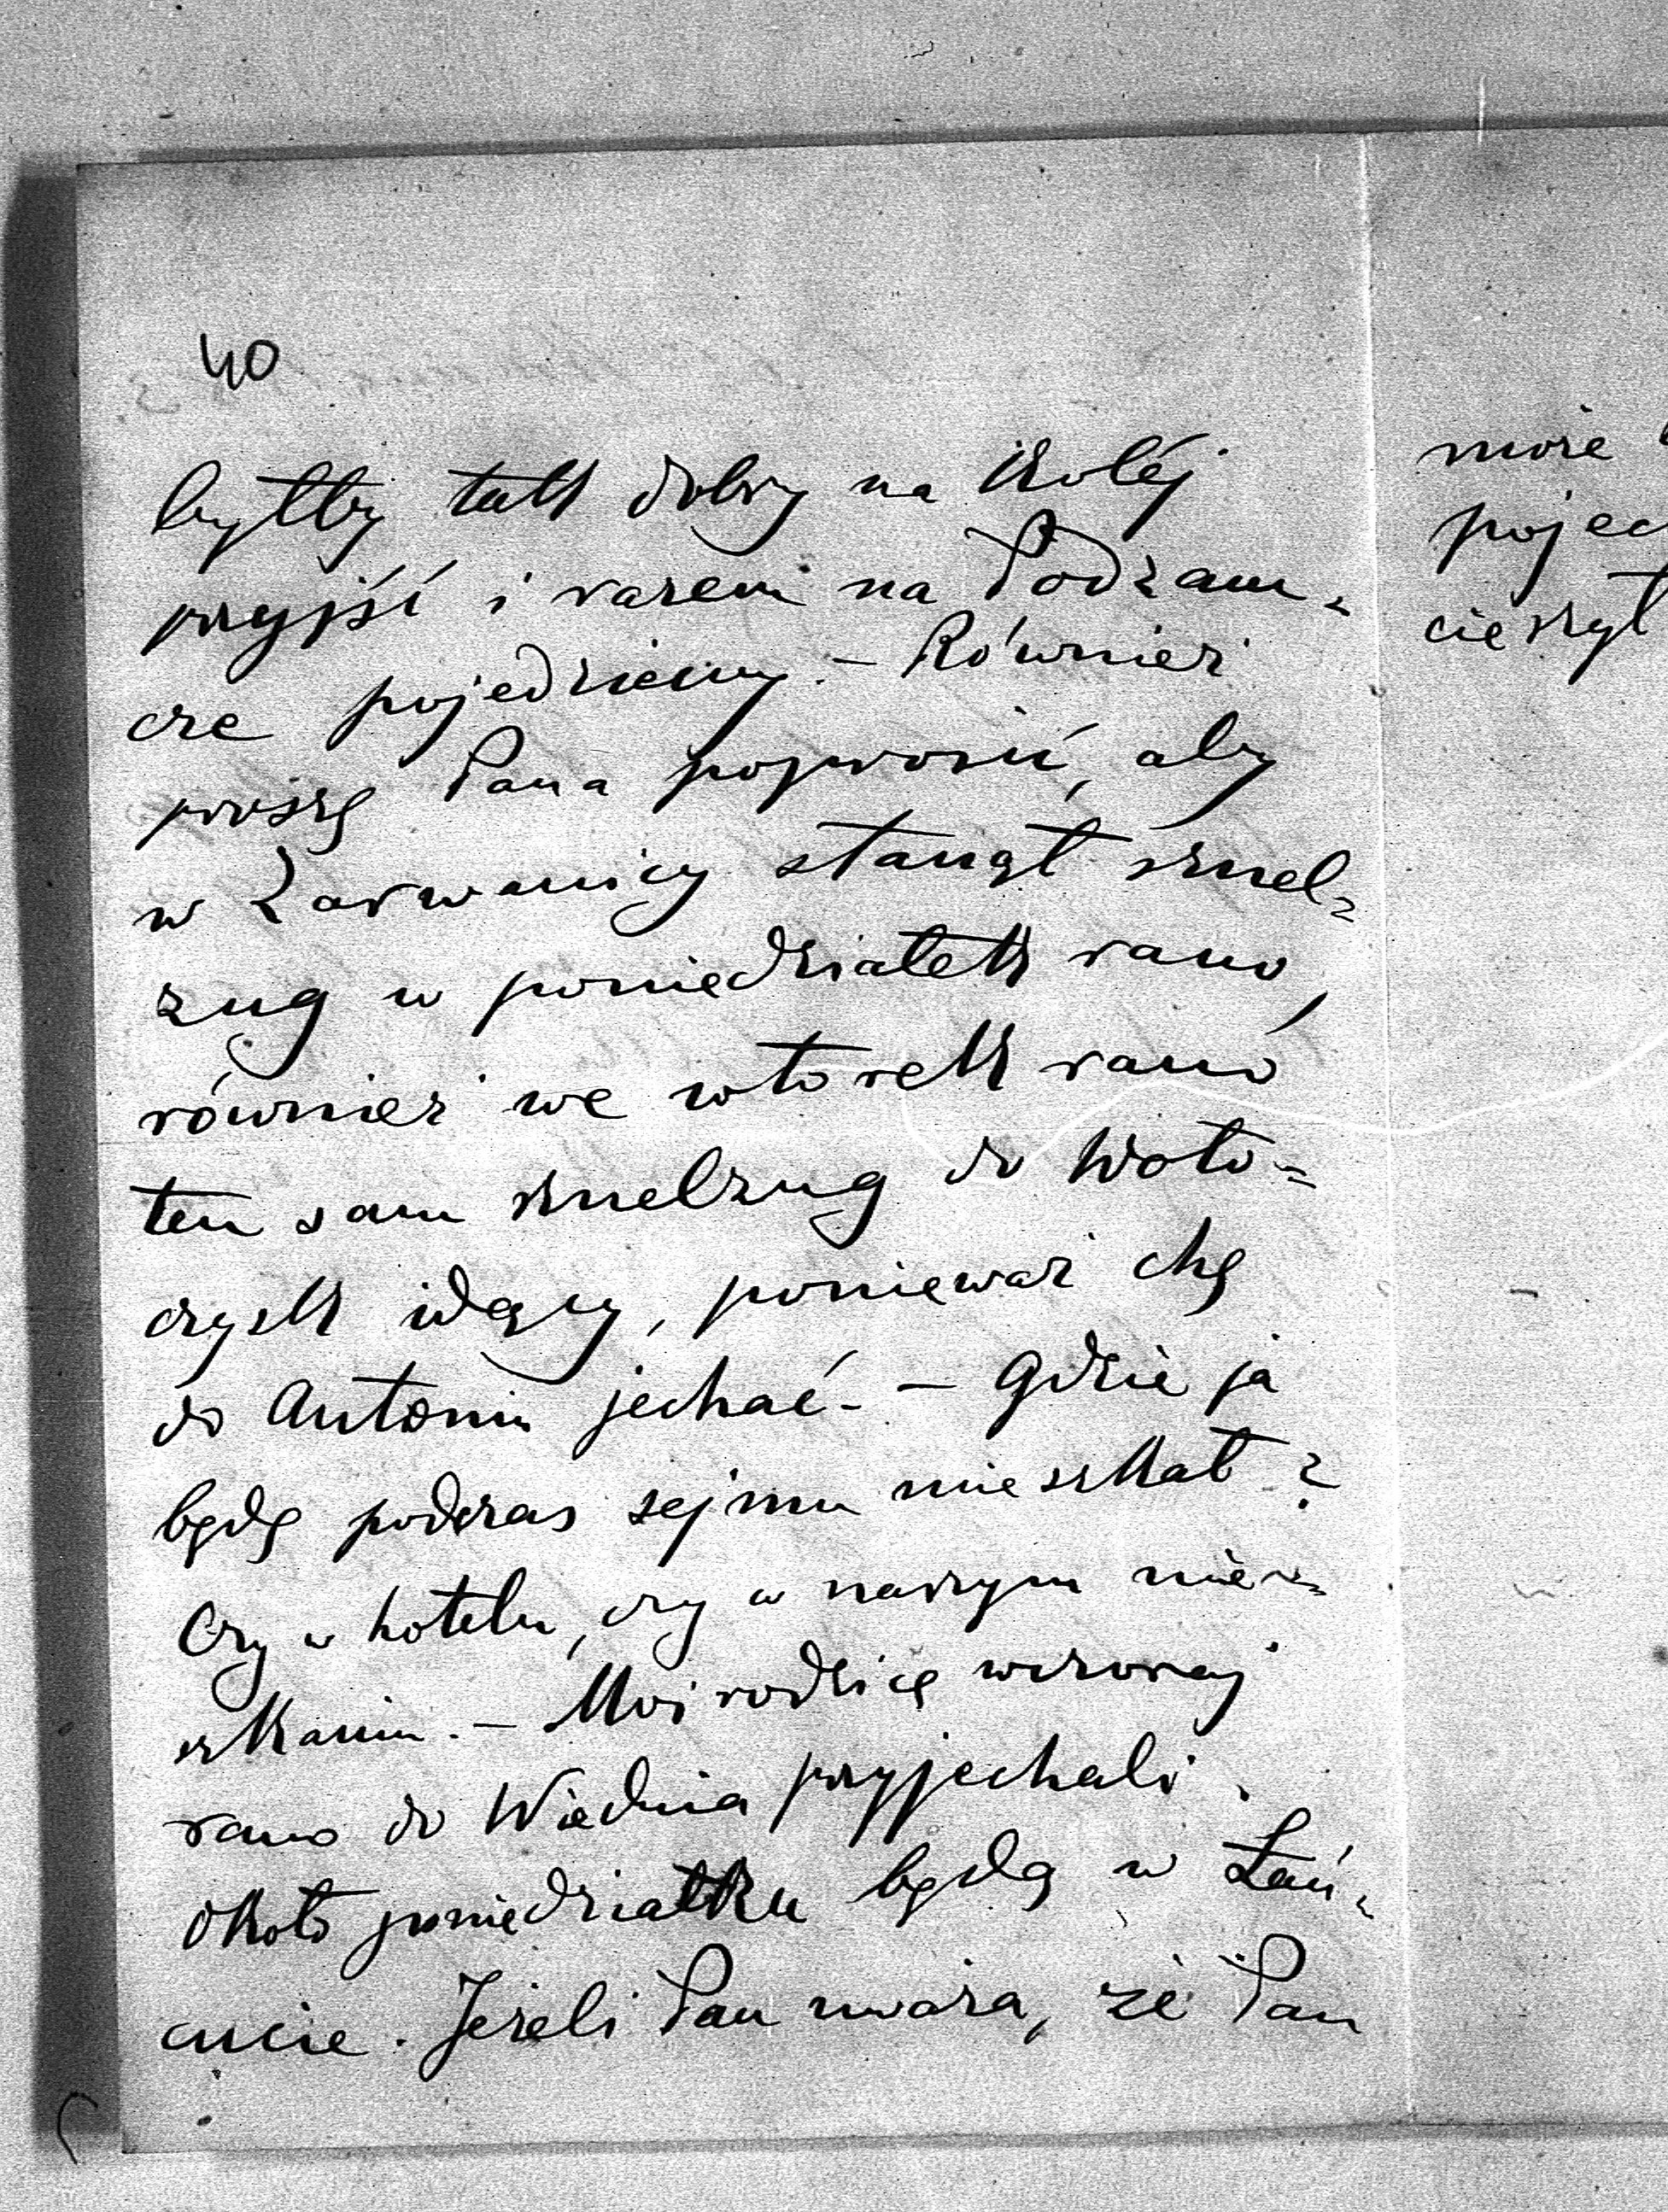 40
byłby tak dobry na kolej
przyjść i razem na Podzam=
cze pojedziemy. – Również
proszę Pana poprosić, aby
w Zarwanicy stanął sznel=
zug w poniedziałek rano,
również we wtorek rano
ten sam sznelzug do Woło=
czysk idący, ponieważ chę
do Antonin jechać. – Gdzie ja
będę podczas sejmu mieszkał?
Czy w hotelu, czy w naszym mie=
szkaniu. – Moi rodzice wczoraj
rano do Wiednia przyjechali.
Około poniedziałku będą w Łań=
cucie. Jeżeli Pan uważa, że Pan
może
pojec
cieszył